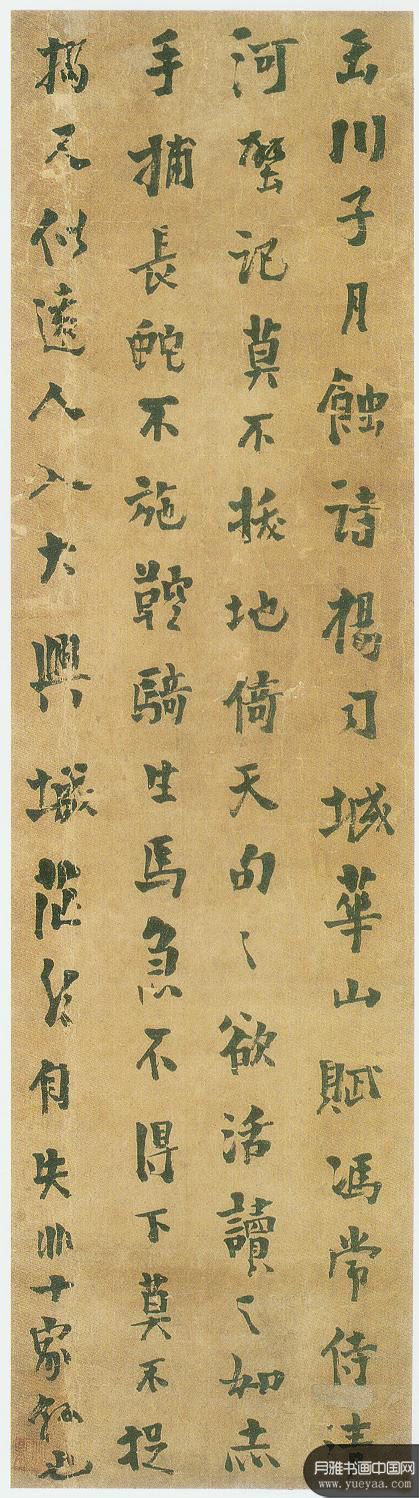 玉川子月蝕詩楊司城華山賦馮常侍清
河壁記莫不拔地倚天句々欲活讀之如赤
手捕長蛇不施鞚騎生馬急不得下莫不捉
搦又似遠人入大興城茫然自失非十家
月雅书画中国网
www.yueyaa.com